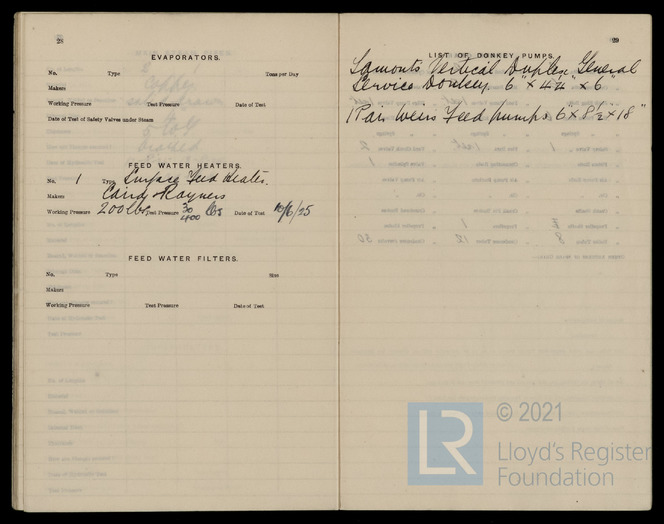 28
EVAPORATORS.
No. Type Tons per Day
Makers
Working Pressure Test Pressure Date of Test
Date of Test of Safety Valves under Steam
FEED WATER HEATERS.
No. 1 Type Surface Feed Heater.
Makers Caird & Rayners
Working Pressure 200 lbs Test Pressure 30 400 lbs Date of Test 10/6/25
FEED WATER FILTERS.
No. Type Size
Makers
Working Pressure Test Pressure Date of Test
29
LIST OF DONKEY PUMPS.
Lamonts Vertical Duplex "General
Service Donkey. 6" × 4¼" × 6"
1 Pair Weirs Feed pumps 6 × 8½ × 18"
© 2021
LR Lloyd's Register
Foundation